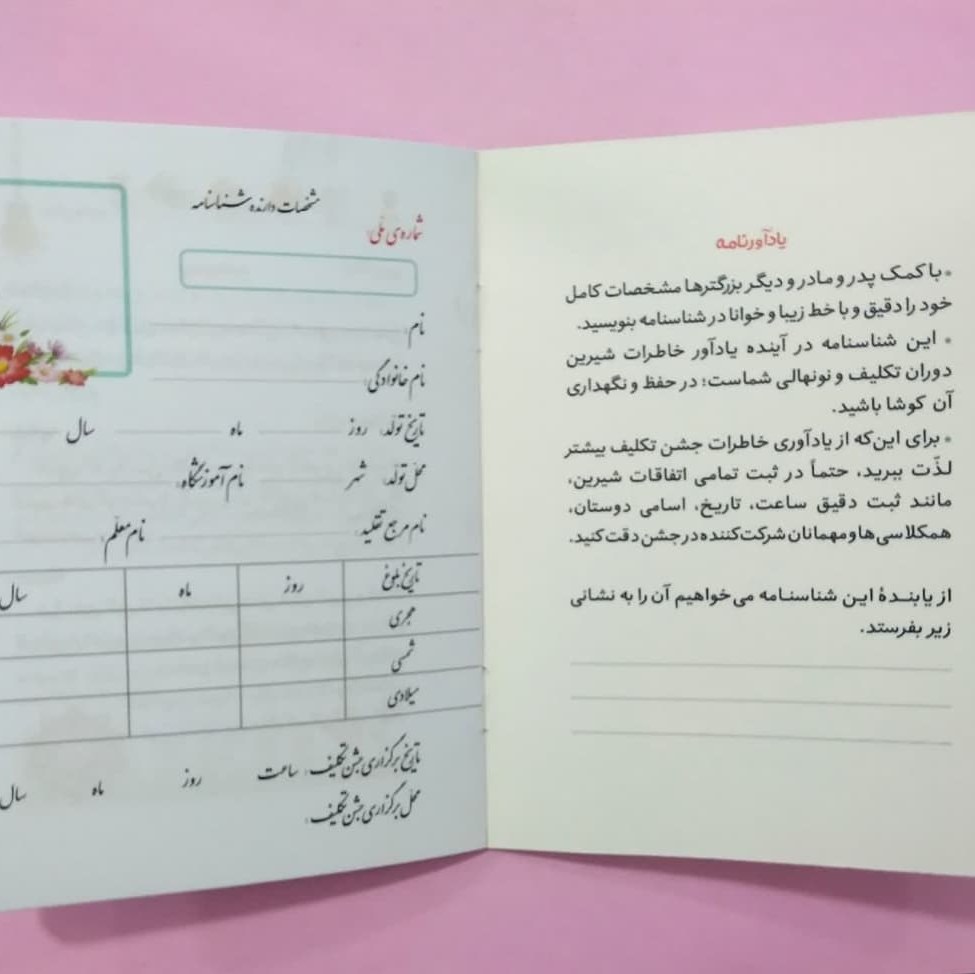 یادآورنامه
• با کمک پدر و مادر و دیگر بزرگترها مشخصات کامل
خود را دقیق و با خط زیبا و خوانا در شناسنامه بنویسید.
• این شناسنامه در آینده یادآور خاطرات شیرین
دوران تکلیف و نونهالی شماست؛ در حفظ و نگهداری
آن کوشا باشید.
• برای این‌که از یادآوری خاطرات جشن تکلیف بیشتر
لذّت ببرید، حتماً در ثبت تمامی اتفاقات شیرین،
مانند ثبت دقیق ساعت، تاریخ، اسامی دوستان،
همکلاسی‌ها و مهمانان شرکت‌کننده در جشن دقت کنید.
از یابندهٔ این شناسنامه می‌خواهیم آن را به نشانی
زیر بفرستد.
مشخصات دارنده شناسنامه
شماره‌ی ملّی:
نام:
نام خانوادگی:
تاریخ تولّد: روز ماه سال
محل تولّد: شهر نام آموزشگاه:
نام مرجع تقلید: نام معلّم:
تاریخ بلوغ روز ماه سال
هجری
شمسی
میلادی
تاریخ برگزاری جشن تکلیف: ساعت روز ماه سال
محل برگزاری جشن تکلیف: